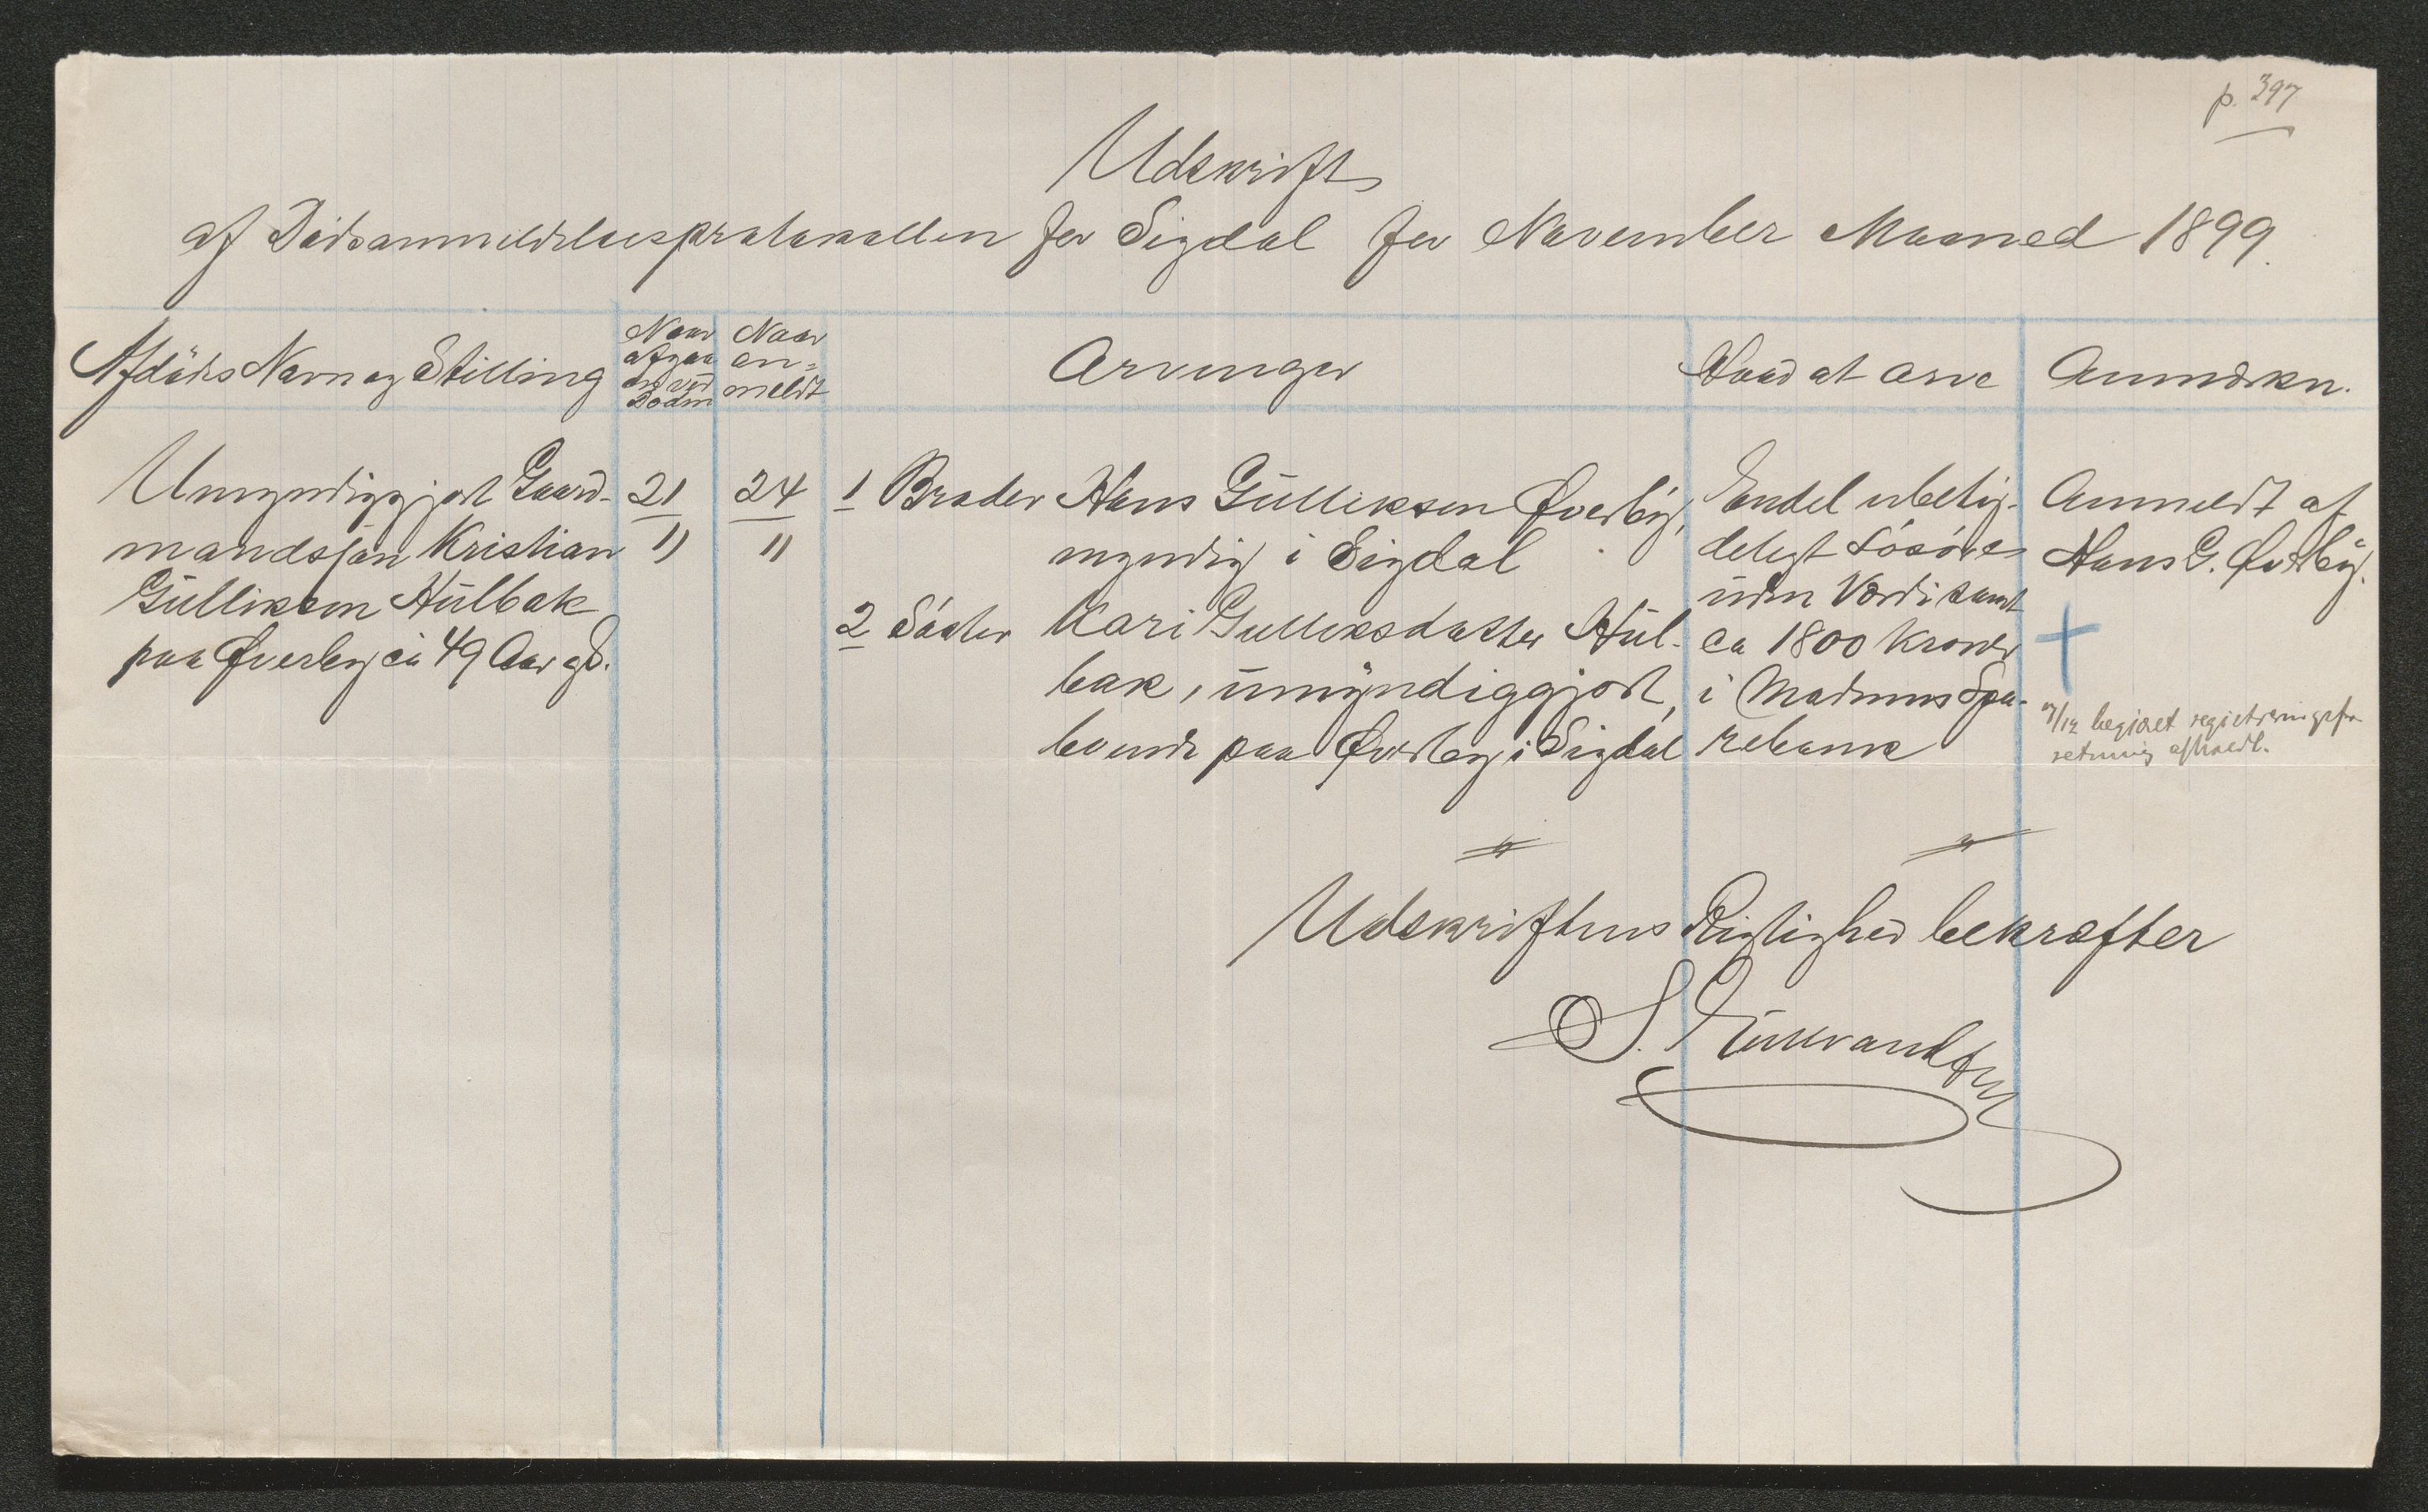 p. 397
Udskrift
af Dødsanmeldelsesprotokollen for Sigdal for November Maaned 1899.
Afdødes Navn og Stilling
Naar
afgaa
en ved
Døden
Naar
an-
meldt
Arvinger
Hvad at arve
Anmærkn.
Umyndiggjort Gaard-
mandssøn Kristian
Gulliksen Hulbak
paa Øverby ca 49 Aar gl.
21
11
24
11
1 Broder Hans Gulliksen Øverby,
myndig i Sigdal
2 Søster Kari Gulliksdatter Hul-
bak, umyndiggjort,
boende paa Øverby i Sigdal
Endel ubetyde-
deligt Løsøre
uden Værdi samt
ca 1800 Kroner
i Modums Spa-
rebank
Anmeldt af
Hans G. Øverby.
/12 begjæret registreringsfor-
retning afholdt.
Udskriftens Rigtighed bekræfter
S.